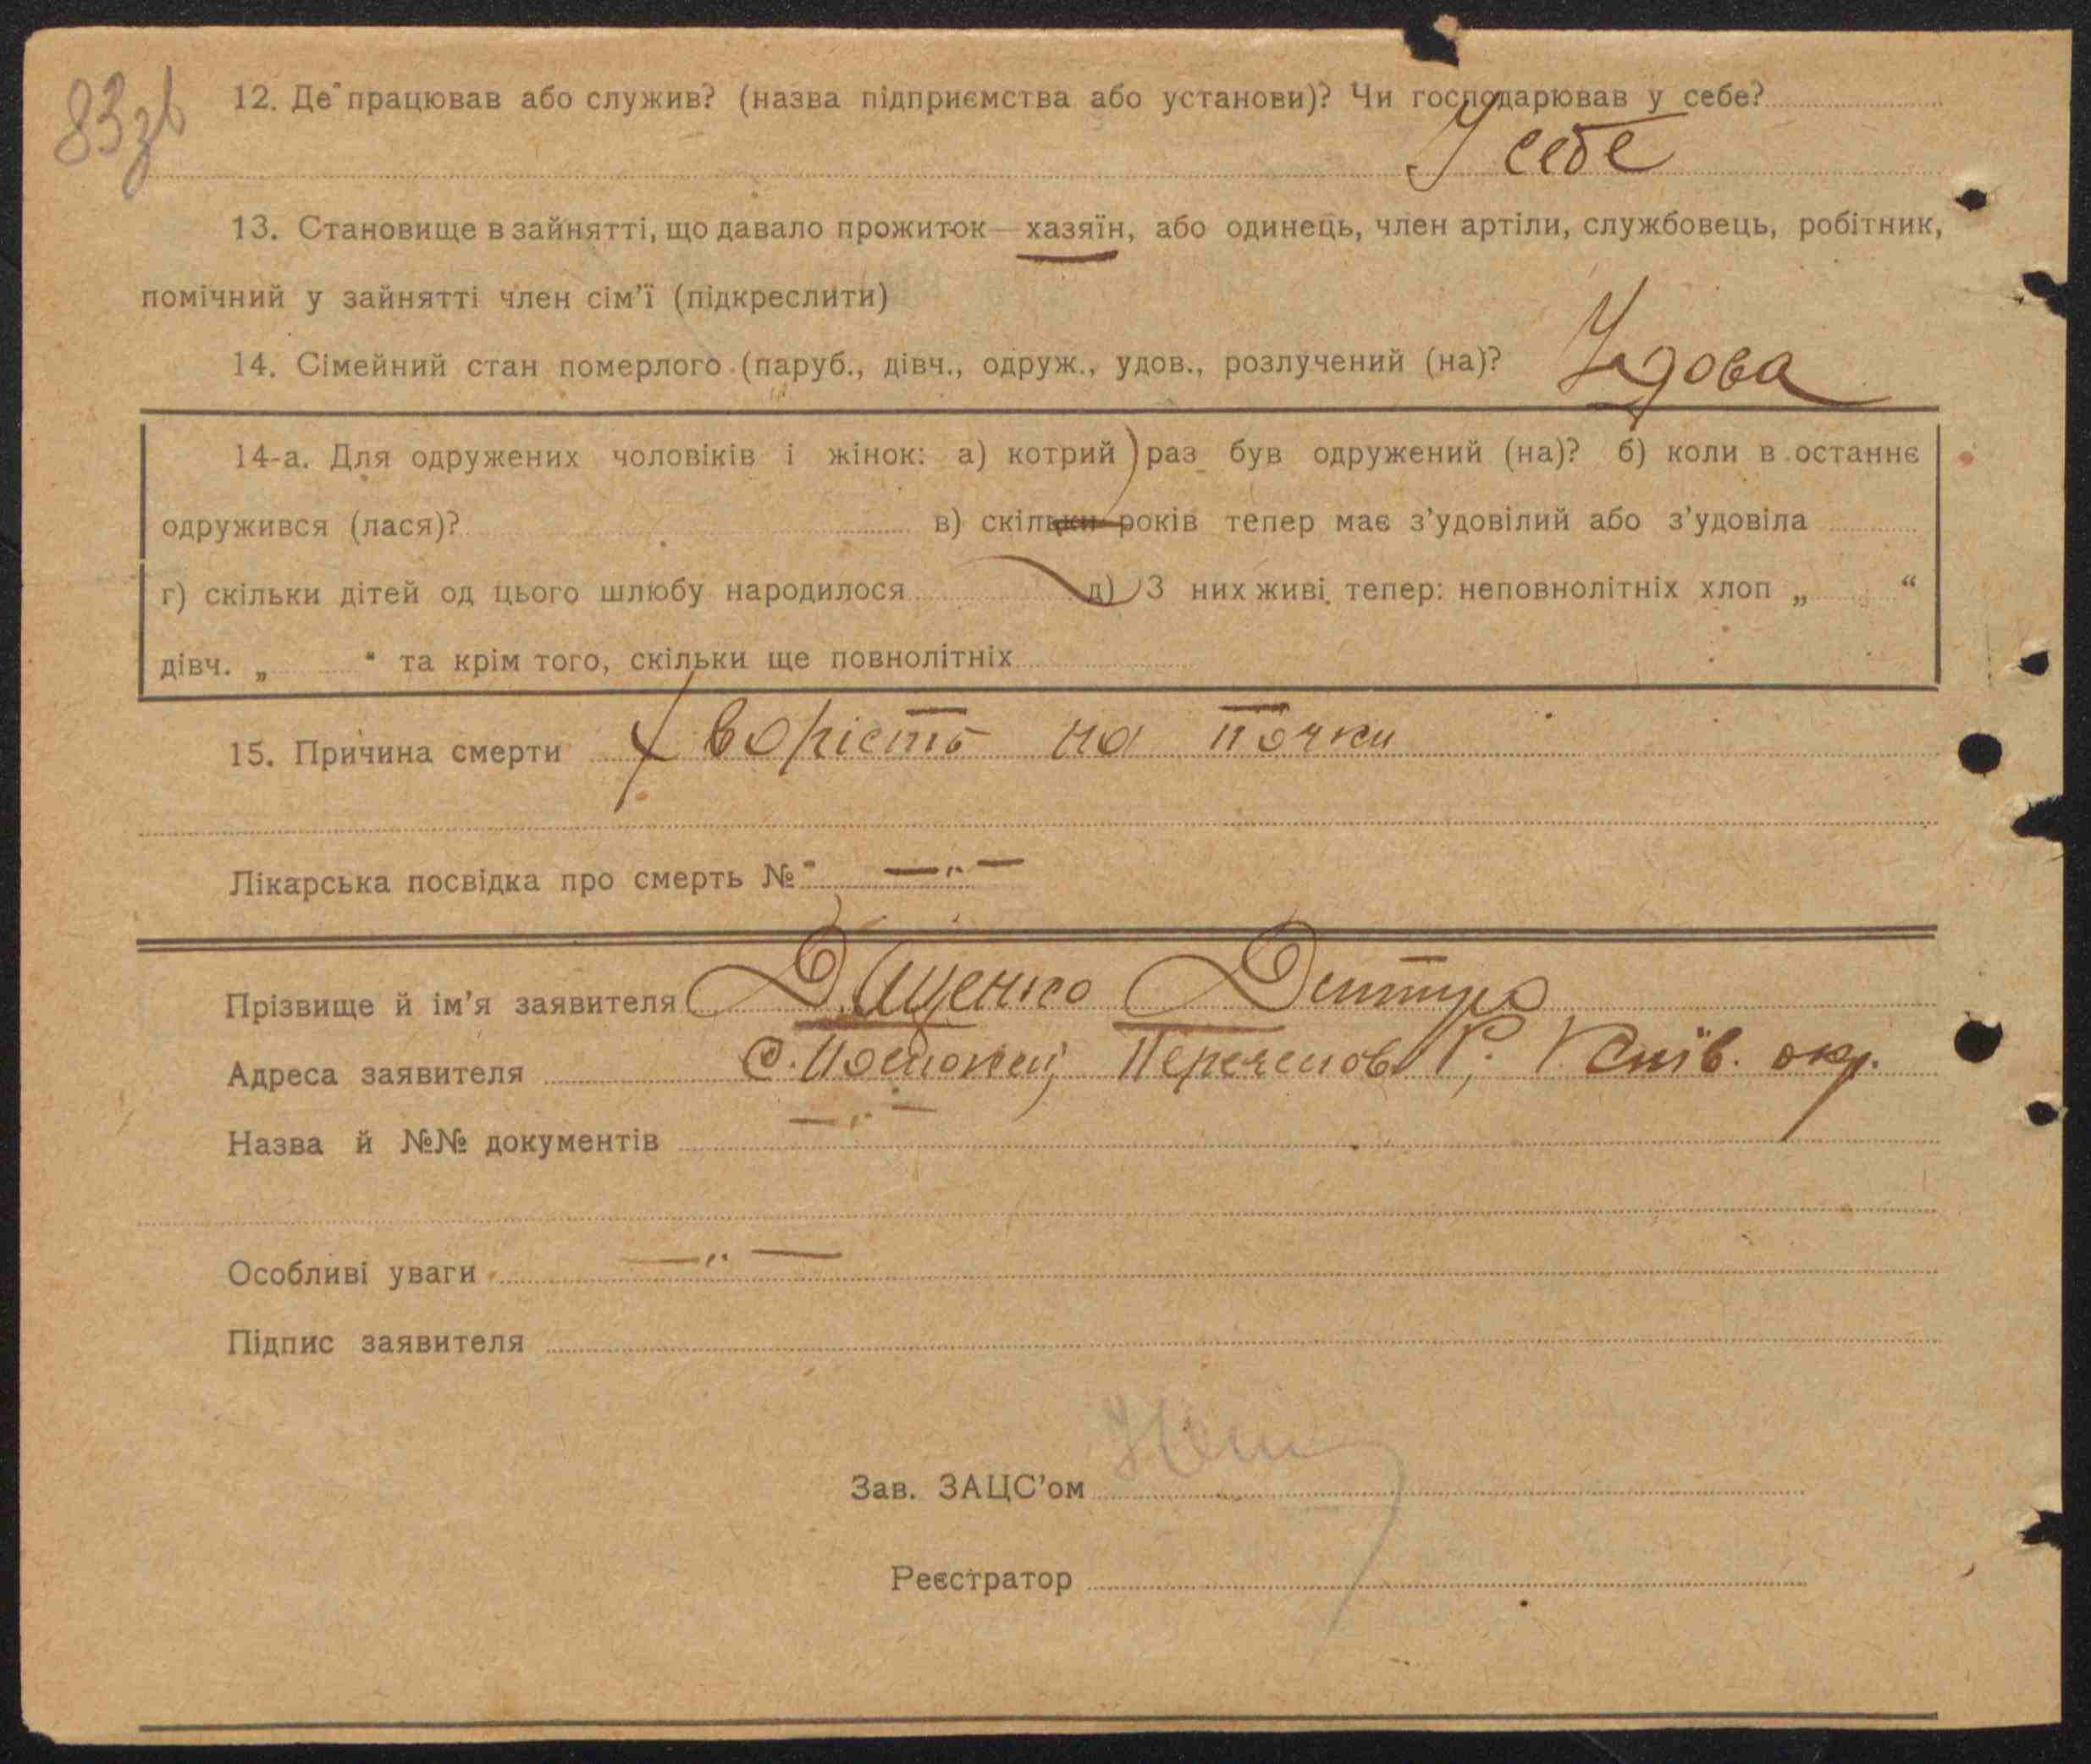 83зв
12. Де працював або служив? (назва підприємства або установи)? Чи господарював у себе?
У себе
13. Становище в зайнятті, що давало прожиток—хазяїн, або одинець, член артіли, службовець, робітник,
помічний у зайнятті член сім'ї (підкреслити)
14. Сімейний стан померлого (паруб., дівч., одруж., удов., розлучений (на)? Удова
14-а. Для одружених чоловіків і жінок: а) котрий раз був одружений (на)? б) коли в останнє
одружився (лася)? в) скільки років тепер має з'удовілий або з'удовіла
г) скільки дітей од цього шлюбу народилося д) З них живі тепер: неповнолітніх хлоп „ “
дівч. „ “ та крім того, скільки ще повнолітніх
15. Причина смерти Хворість на почки
Лікарська посвідка про смерть № —„—
Прізвище й ім'я заявителя Дяченко
Адреса заявителя с. Київ. окр.
Назва й №№ документів —„—
Особливі уваги —„—
Підпис заявителя
Зав. ЗАЦС'ом
Реєстратор